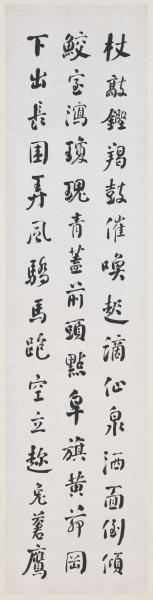 杖敲鏗羯鼓催喚起謫仙泉洒面倒傾
鮫室瀉瓊瑰青蓋前頭點皁旗黃茅岡
下出長圍弄風驕馬跑空立趁兔蒼鷹